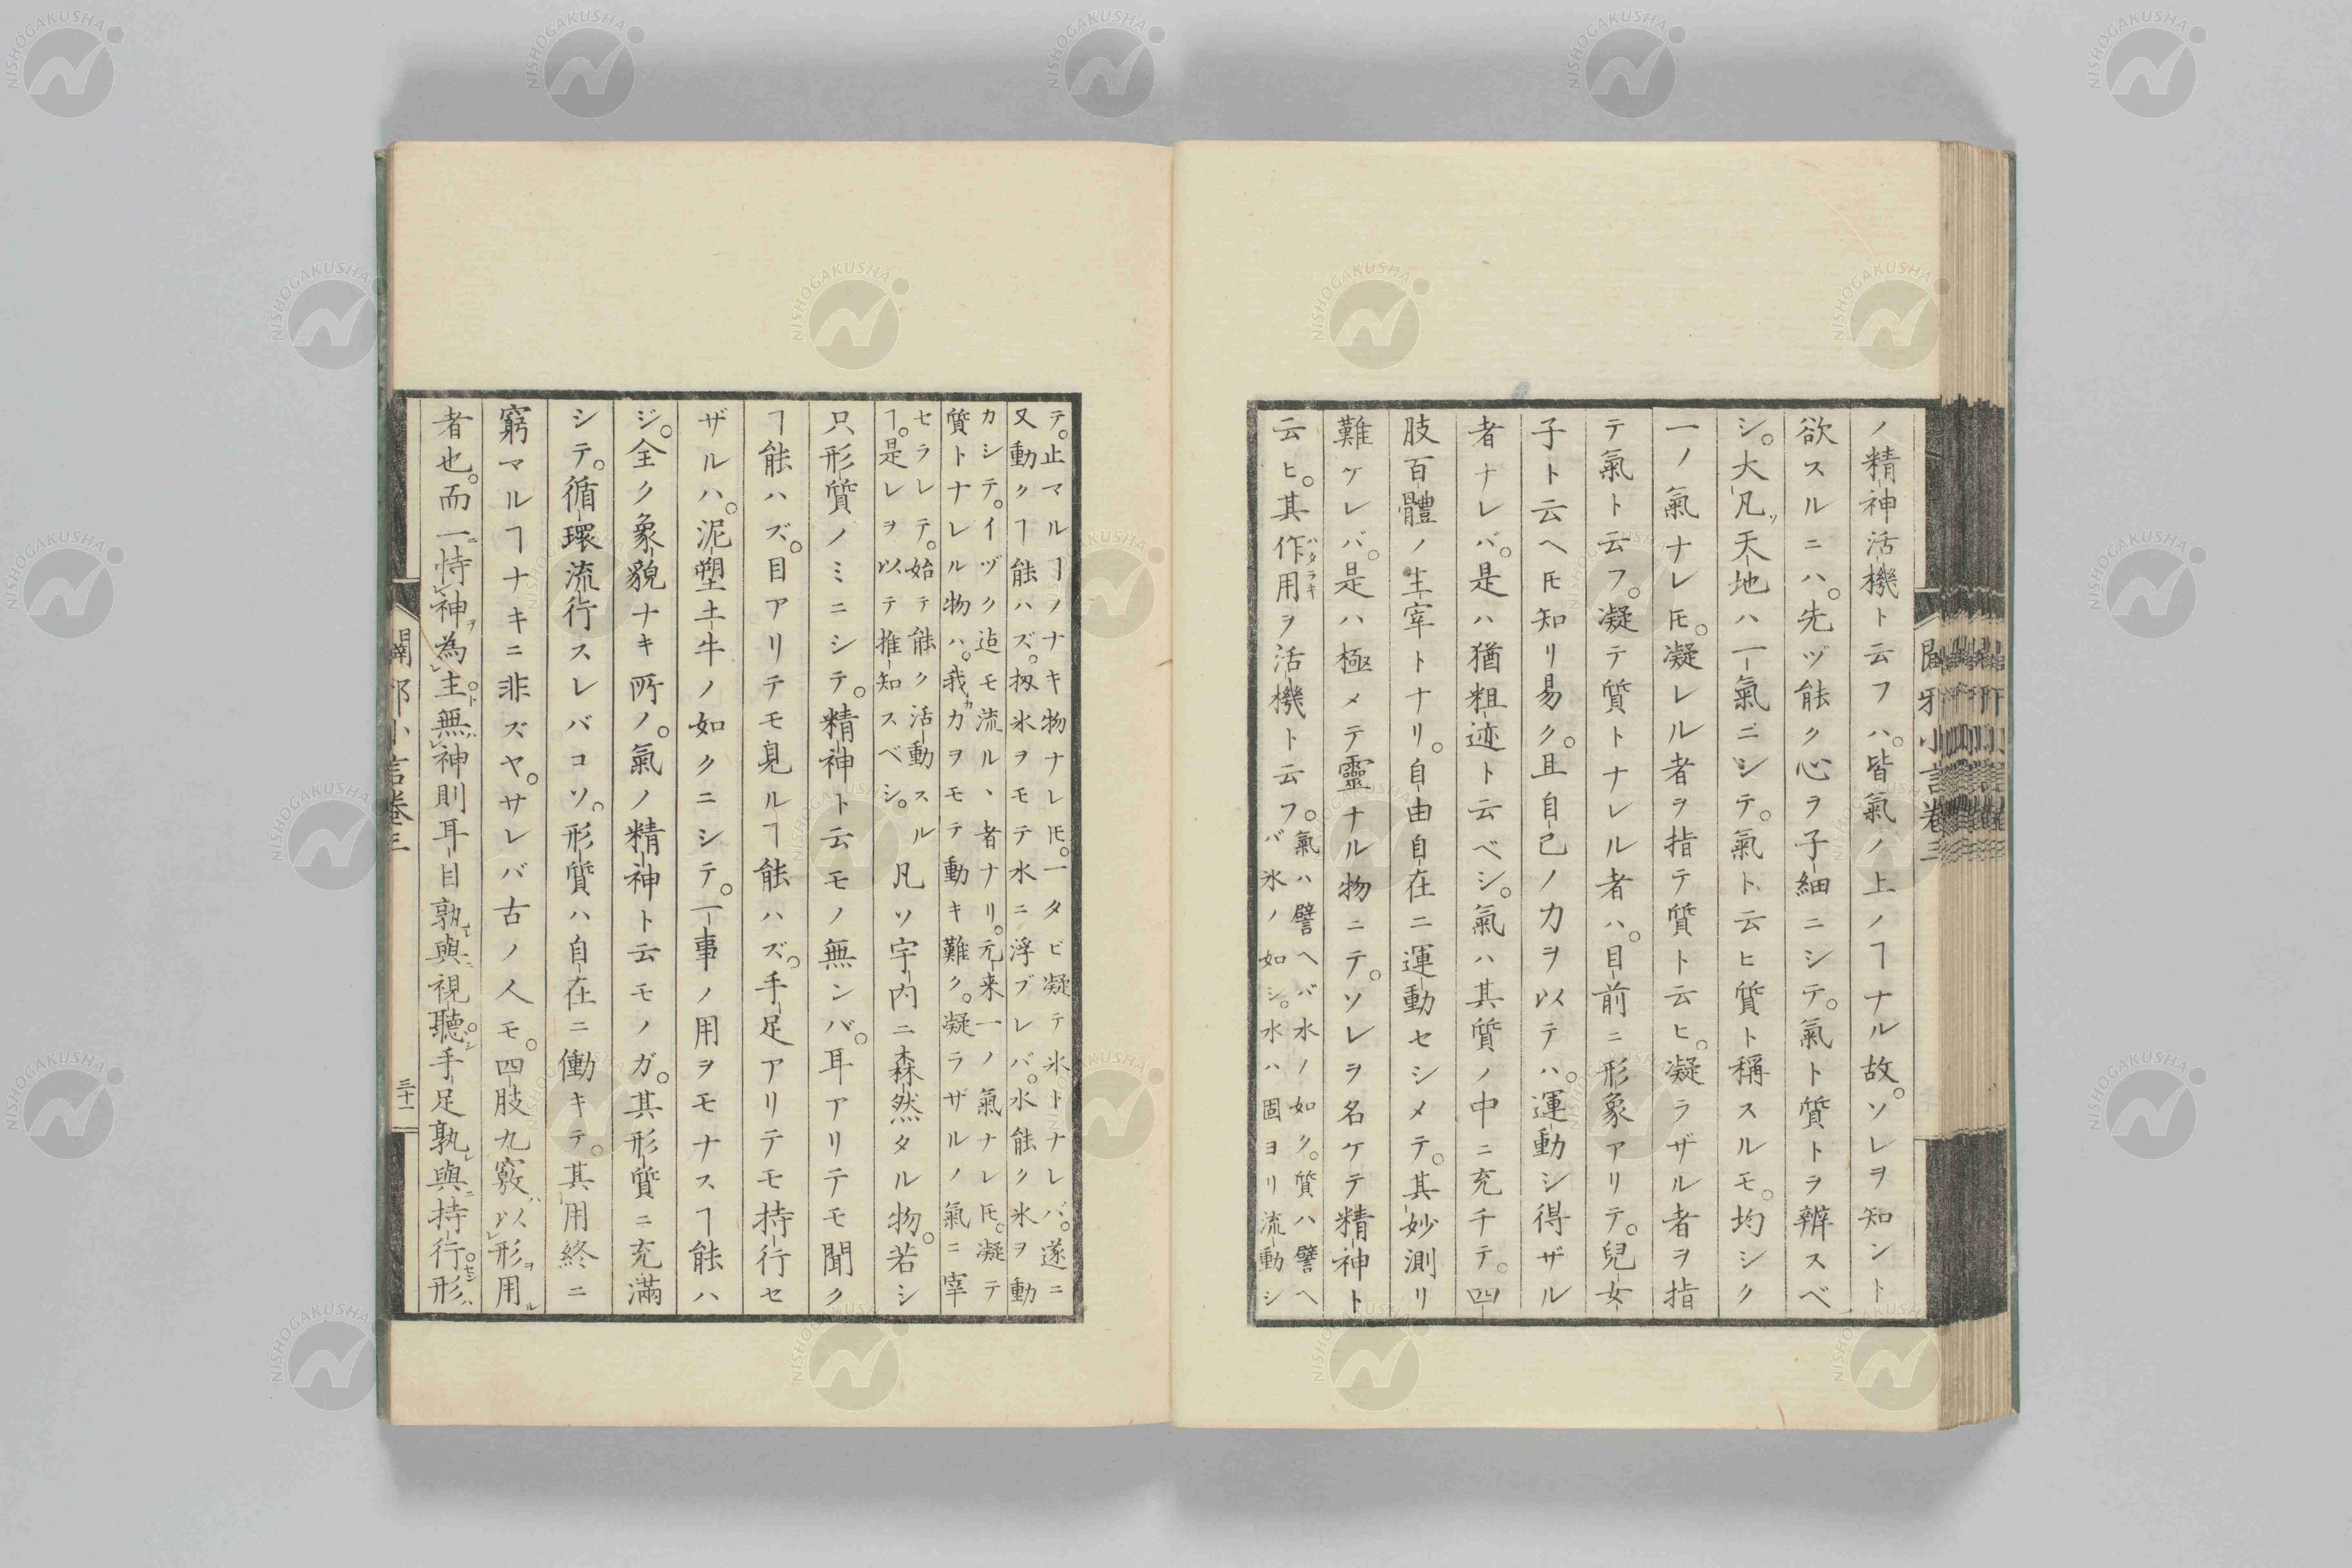 ノ精神活機ト云フハ。皆氣ノ上ノヿナル故。ソレヲ知ント
欲スルニハ。先ヅ能ク心ヲ子細ニシテ。氣ト質トヲ辨スベ
シ。大凡ソ天地ハ一氣ニシテ。氣ト云ヒ質ト稱スルモ。均シク
一ノ氣ナレ𪜈。凝レル者ヲ指テ質ト云ヒ。凝ラザル者ヲ指
テ氣ト云フ。凝テ質トナレル者ハ。目前ニ形象アリテ。兒女
子ト云ヘ𪜈知リ易ク。且自己ノ力ヲ以テハ。運動シ得ザル
者ナレバ。是ハ猶粗迹ト云ベシ。氣ハ其質ノ中ニ充チテ。四
肢百體ノ主宰トナリ。自由自在ニ運動セシメテ。其妙測リ
難ケレバ。是ハ極メテ靈ナル物ニテ。ソレヲ名ケテ精神ト
云ヒ。其作用ヲ活機ト云フ。
ハタラキ
氣ハ譬ヘバ水ノ如ク。質ハ譬ヘ
バ氷ノ如シ。水ハ固ヨリ流動シ
テ。止マルヿノナキ物ナレ𪜈。一タビ凝テ氷トナレバ。遂ニ
又動クヿ能ハズ。扨氷ヲモテ水ニ浮ブレバ。水能ク氷ヲ動
カシテ。イヅク迠モ流ルヽ者ナリ。元来一ノ氣ナレ𪜈。凝テ
質トナレル物ハ。我カ力ヲモテ動キ難ク。凝ラザルノ氣ニ宰
セラレテ。始テ能ク活動スル
ヿ。是レヲ以テ推知スベシ。
凡ソ宇内ニ森然タル物。若シ
只形質ノミニシテ。精神ト云モノ無ンバ。耳アリテモ聞ク
ヿ能ハズ。目アリテモ見ルヿ能ハズ。手足アリテモ持行セ
ザルハ。泥塑土牛ノ如クニシテ。一事ノ用ヲモナスヿ能ハ
ジ。全ク象貌ナキ所ノ。氣ノ精神ト云モノガ。其形質ニ充滿
シテ。循環流行スレバコソ。形質ハ自在ニ働キテ。其用終ニ
窮マルヿナキニ非ズヤ。サレバ古ノ人モ。四肢九竅ハ以形ヲ用ル
者也。而一ニ恃神ヲ為主ト。無神則耳目孰與視聽。手足孰與持行。形ハ
闢邪小言卷三
三十一